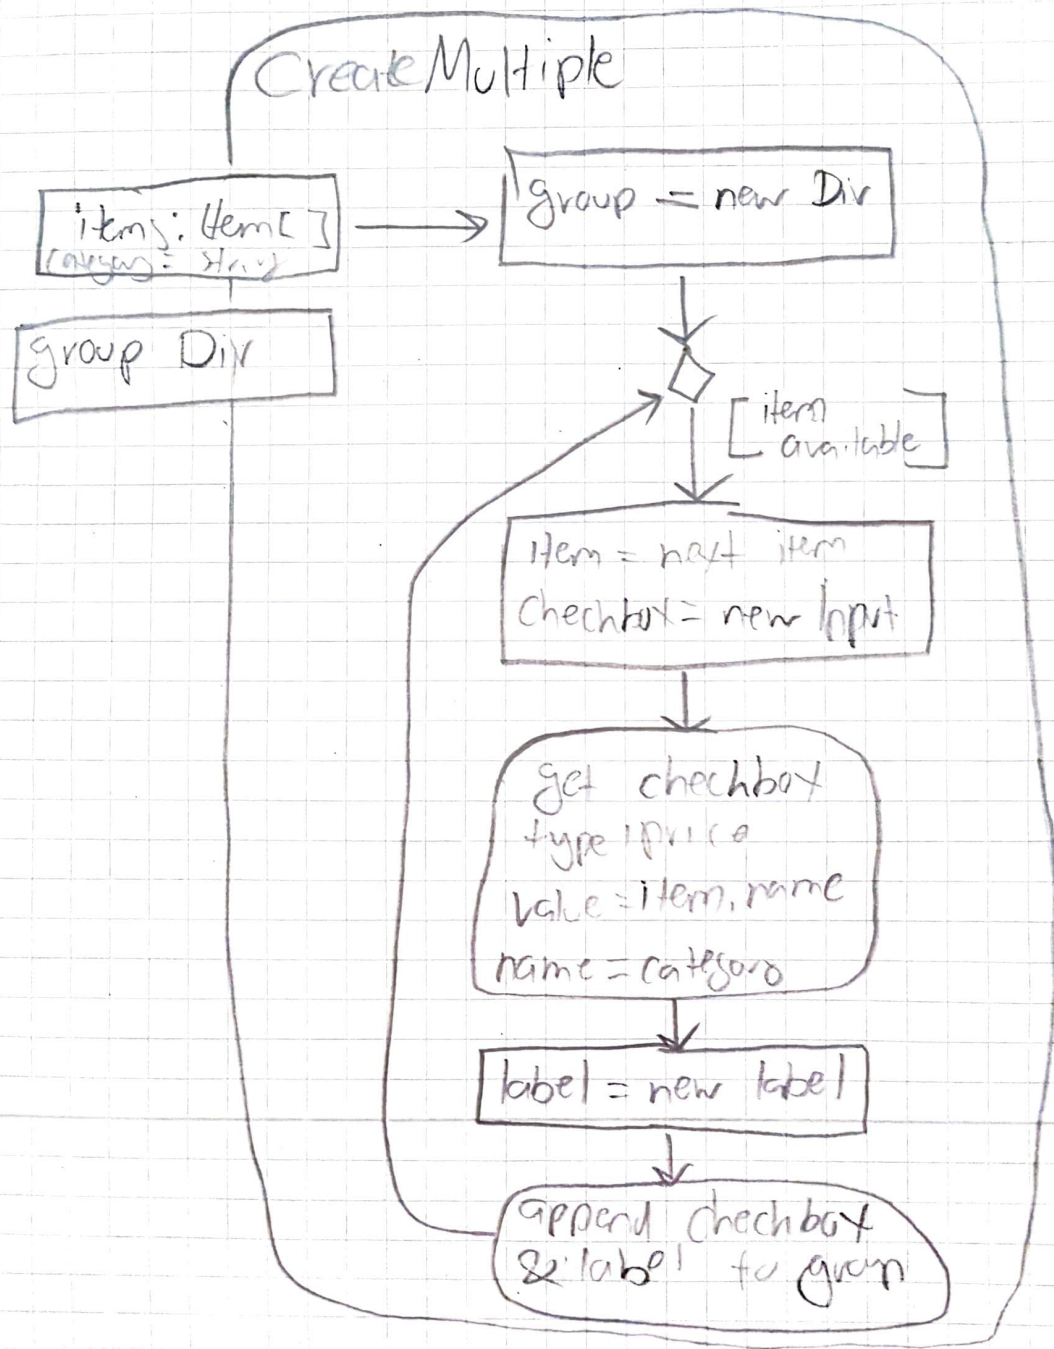 CreateMultiple
items: Item[]
category: string
group = new Div
group Div
[item
available]
item = next item
Checkbox = new Input
get checkbox
type, price
value = item.name
name = category
label = new label
append checkbox
& label to group